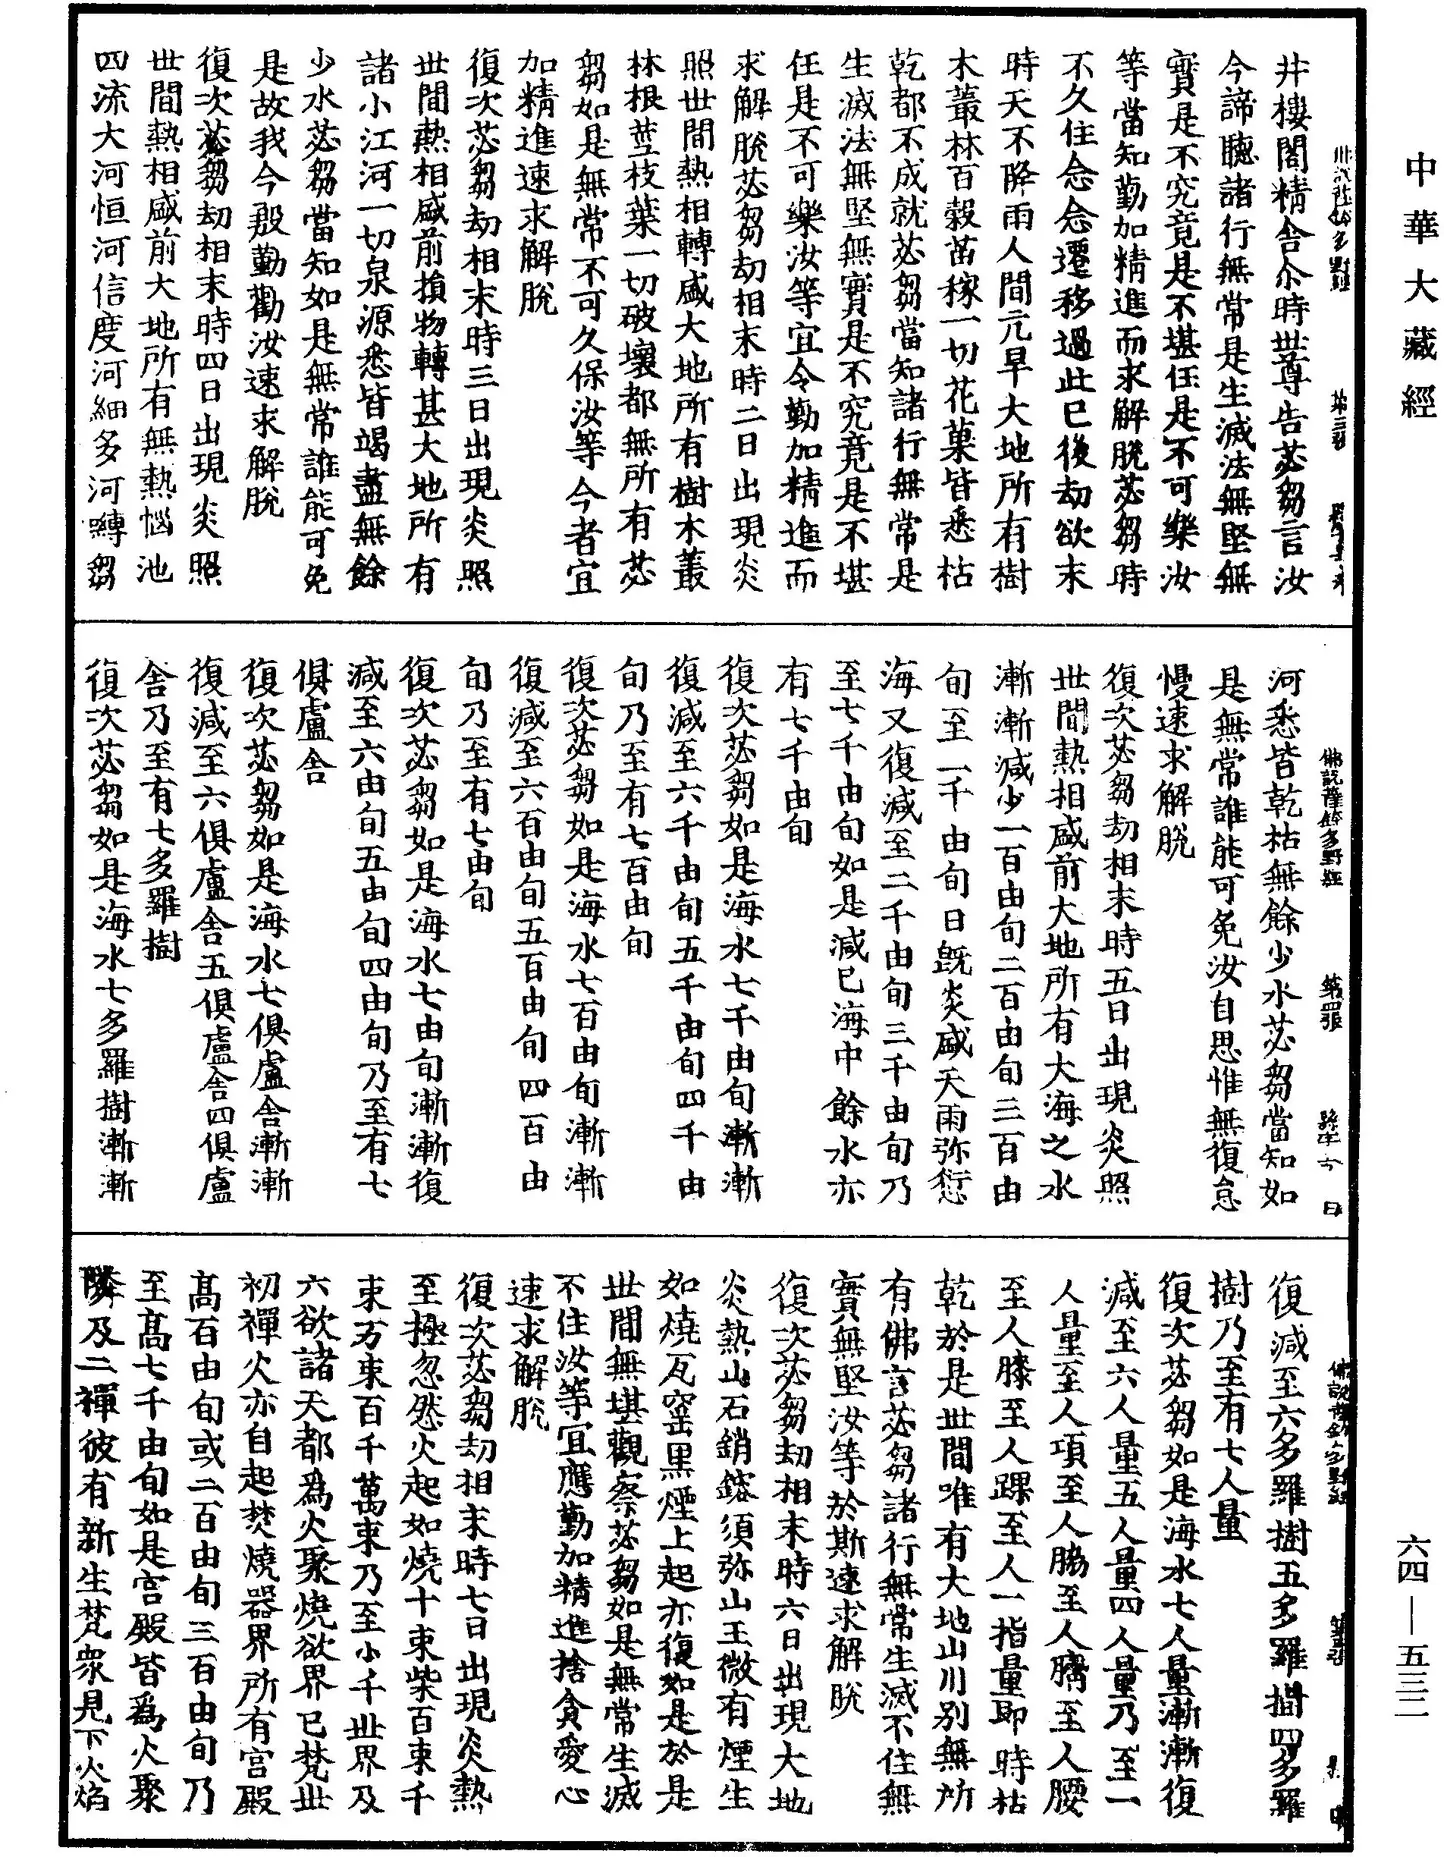 中華大藏經
井樓閣精舍尒時世尊告苾芻言汝
今諦聽諸行無常是生滅法無堅無
實是不究竟是不堪任是不可樂汝
等當知勤加精進而求解脫苾芻時
不久住念念遷移過此已後劫欲末
時天不降雨人間亢旱大地所有樹
木叢林百穀苗稼一切花菓皆悉枯
乾都不成就苾芻當知諸行無常是
生滅法無堅無實是不究竟是不堪
任是不可樂汝等宜令勤加精進而
求解脫苾芻劫相末時二日出現炎
照世間熱相轉盛大地所有樹木叢
林根莖枝葉一切破壞都無所有苾
芻如是無常不可久保汝等今者宜
加精進速求解脫
復次苾芻劫相末時三日出現炎照
世間熱相盛前損物轉甚大地所有
諸小江河一切泉源悉皆竭盡無餘
少水苾芻當知如是無常誰能可免
是故我今殷勤勸汝速求解脫
復次苾芻劫相末時四日出現炎照
世間熱相盛前大地所有無熱惱池
四流大河恒河信度河細多河嚩芻
佛說薩鉢多酥哩 第四張
河悉皆乾枯無餘少水苾芻當知如
是無常誰能可免汝自思惟無復怠
慢速求解脫
復次苾芻劫相末時五日出現炎照
世間熱相盛前大地所有大海之水
漸漸減少一百由旬二百由旬三百由
旬至一千由旬日旣炎盛天雨弥愆
海又復減至二千由旬三千由旬乃
至七千由旬如是減已海中餘水亦
有七千由旬
復次苾芻如是海水七千由旬漸漸
復減至六千由旬五千由旬四千由
旬乃至有七百由旬
復次苾芻如是海水七百由旬漸漸
復減至六百由旬五百由旬四百由
旬乃至有七由旬
復次苾芻如是海水七由旬漸漸復
減至六由旬五由旬四由旬乃至有七
俱盧舍
復次苾芻如是海水七俱盧舍漸漸
復減至六俱盧舍五俱盧舍四俱盧
舍乃至有七多羅樹
復次苾芻如是海水七多羅樹漸漸
復減至六多羅樹五多羅樹四多羅
樹乃至有七人量
復次苾芻如是海水七人量漸漸復
減至六人量五人量四人量乃至一
人量至人項至人脇至人臍至人腰
至人膝至人踝至人一指量即時枯
乾於是世間唯有大地山川別無所
有佛言苾芻諸行無常生滅不住無
實無堅汝等於斯速求解脫
復次苾芻劫相末時六日出現大地
炎熱山石銷鎔須弥山王微有煙生
如燒瓦窑黑煙上起亦復如是於是
世間無堪觀察苾芻如是無常生滅
不住汝等宜應勤加精進捨貪愛心
速求解脫
復次苾芻劫相末時七日出現炎熱
至極忽然火起如燒十束柴百束千
束万束百千萬束乃至小千世界及
六欲諸天都為火聚燒欲界已梵世
初禪火亦自起焚燒器界所有宮殿
高百由旬或二百由旬三百由旬乃
至高七千由旬如是宮殿皆為火聚
隣及二禪彼有新生梵眾見下火焰
六四—五三二